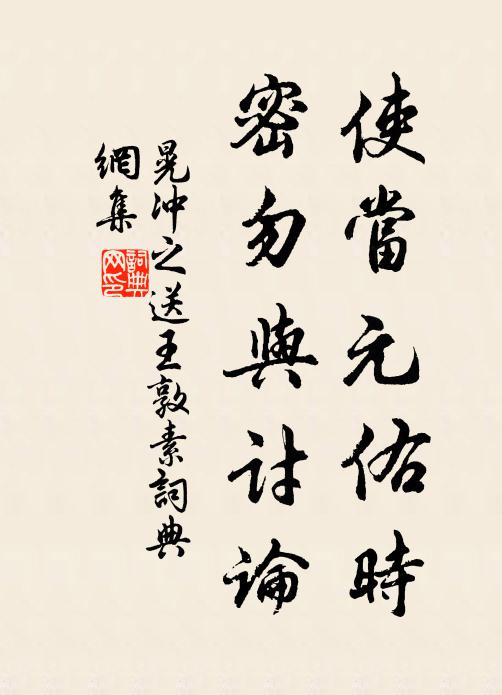 使當元佑時
密勿與討論
晃沖之送王敦素詞典
網集
詞典
网印